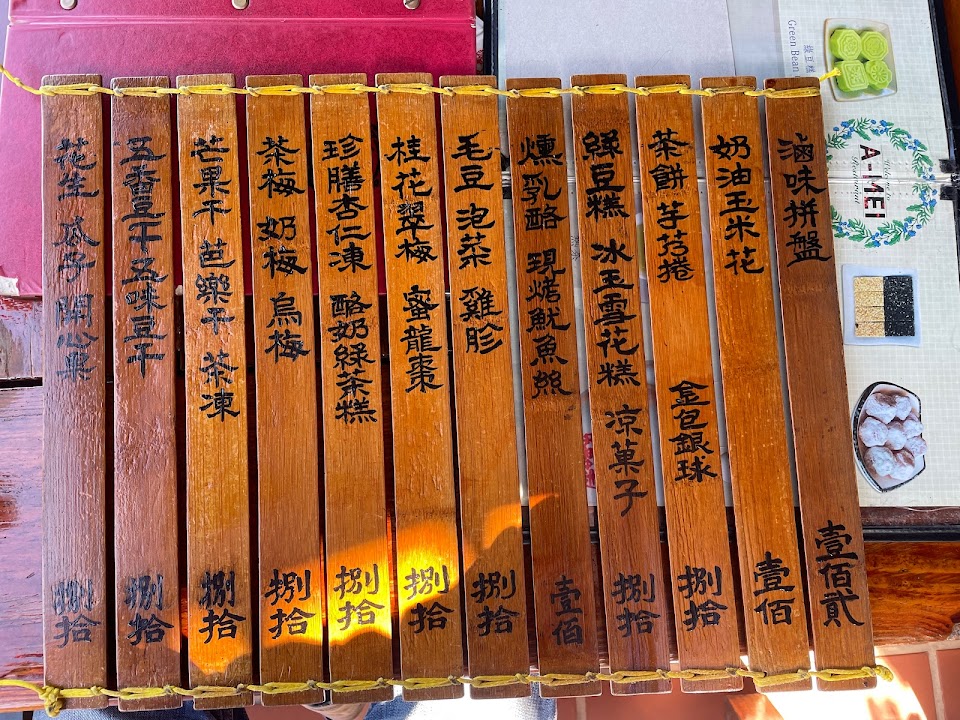 滷味拼盤 壹佰貳
奶油玉米花 壹佰
茶餅 金包銀球 捌拾
綠豆糕 冰玉雪花糕 凉菓子 捌拾
燻乳酪 現烤魷魚絲 壹佰
毛豆 泡菜 雞胗 捌拾
桂花翠梅 蜜龍棗 捌拾
珍膳杏仁凍 酪奶綠茶糕 捌拾
茶梅 奶梅 烏梅 捌拾
芒果干 芭樂干 茶凍 捌拾
五香豆干 五味豆干 捌拾
花生 瓜子 開心果 捌拾
綠豆糕
Green Bean
A-MEI